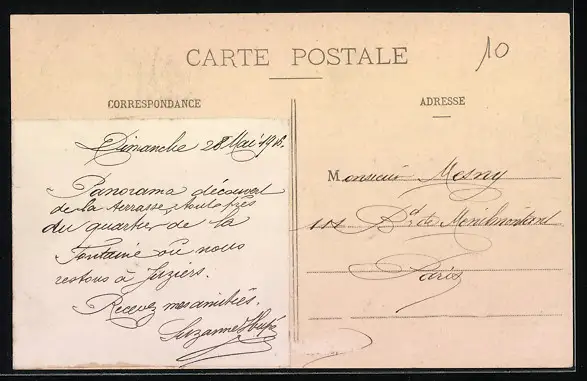 CARTE POSTALE
10
CORRESPONDANCE
Dimanche 28 Mai 19
Panorama découvert
de la terrasse, toute près
du quartier de la
Fontaine où nous
restons à Juziers.
Recevez mes amitiés.
Suzanne
ADRESSE
Monsieur Mesny
Bd de Ménilmontant
Paris